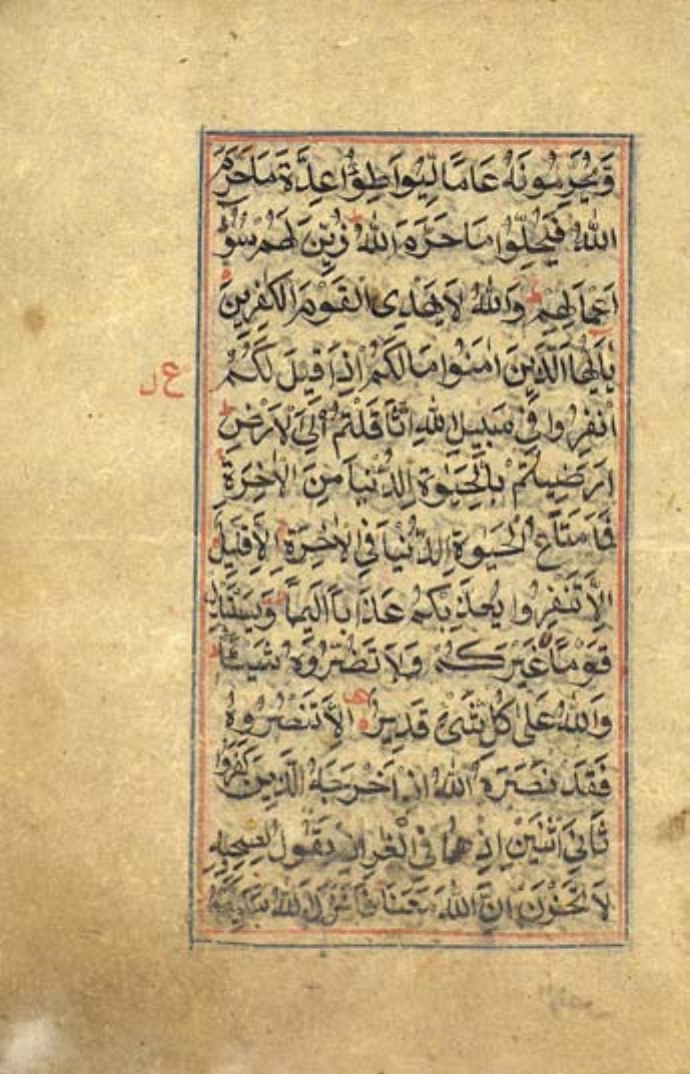 وَّيُحَرِّمُونَهُ عَامًا لِّيُوَاطِؤُا عِدَّةَ مَا حَرَّمَ
اللّٰهُ فَيُحِلُّوا مَا حَرَّمَ اللّٰهُ ط زُيِّنَ لَهُمْ سُوْٓءُ
اَعْمَالِهِمْ ط وَاللّٰهُ لَا يَهْدِى الْقَوْمَ الْكٰفِرِينَ
يٰاَيُّهَا الَّذِينَ اٰمَنُوا مَا لَكُمْ اِذَا قِيلَ لَكُمُ
ع
انْفِرُوا فِى سَبِيلِ اللّٰهِ اثَّاقَلْتُمْ اِلَى الْاَرْضِ ط
اَرَضِيتُمْ بِالْحَيٰوةِ الدُّنْيَا مِنَ الْاٰخِرَةِ
فَمَا مَتَاعُ الْحَيٰوةِ الدُّنْيَا فِى الْاٰخِرَةِ اِلَّا قَلِيلٌ
اِلَّا تَنْفِرُوا يُعَذِّبْكُمْ عَذَابًا اَلِيمًا وَّيَسْتَبْدِلْ
قَوْمًا غَيْرَكُمْ وَلَا تَضُرُّوهُ شَيْئًا ط
وَاللّٰهُ عَلٰى كُلِّ شَىْءٍ قَدِيرٌ اِلَّا تَنْصُرُوهُ
فَقَدْ نَصَرَهُ اللّٰهُ اِذْ اَخْرَجَهُ الَّذِينَ كَفَرُوا
ثَانِىَ اثْنَيْنِ اِذْ هُمَا فِى الْغَارِ اِذْ يَقُولُ لِصَاحِبِهِ
لَا تَحْزَنْ اِنَّ اللّٰهَ مَعَنَا فَاَنْزَلَ اللّٰهُ سَكِينَتَهُ